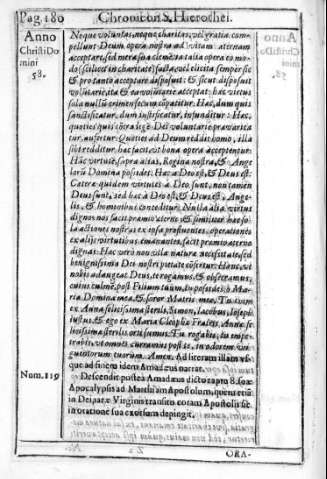 Pag. 180 Chronicon S. Hierothei.
Anno
Christi Do
mini
58.
Neque voluntas, neque charitas, vel gratia com-
pellunt Deum opera nostra ad vitam æternam
acceptare, sed mera sua clementia talia opera eo mo-
do (scilicet in charitate) facta, vel elicita semper sic
& pro tanto acceptare disposuit: & sicut disposuit
voluntarie, ita & tam voluntarie acceptat: hæc virtus
sola nullũ crimen secum cõpatitur. Hac, dum quis
sanctificatur, dum iustificatur, infunditur: Hac,
quoties quis cõtra legẽ Dei voluntarie prævarica
tur, aufertur. Quoties ad Deum reddit homo, illa
sibi redditur, hac facit, vt bona opera acceptentur.
Hãc virtutẽ, supra alias, Regina nostra, & Ange
lorũ Domina possidet: Hæc a Deo est, & Deus est:
Cæteræ quidem virtutes à Deo sunt, non tamen
Deus sunt, sed hæc à Deo est, & Deus est, Ange-
lis, & hominibus conceditur. Nulla alia virtus
dignos nos facit præmio æterno, & similiter hæc so-
la actiones nostras ex ipsa profluentes, operationes
ex alijs virtutibus emanantes, facit præmio æterno
dignas: Hac verò non sola natura necessitate, sed
benignissimis Dei nostri pietate cõsertur. Hanc, vt
nobis adaugeat Deus, te rogamus, & obsecramus,
cuius culmẽ, post Filium tuum, tu possides, ò Ma-
ria, Domina mea, & soror Matris meæ. Tu enim
ex Anna felicissima sterilis. Simon, Iacobus, Ioseph
iustus, & ego ex Maria Cleophæ Fratris, Annæ fe-
licissimæ sterilis orti sumus. Tu rogabis, tu impe-
trabis, vt omnes curramus post te, in odorem vn-
guentorum tuorum. Amen. Ad literam illam vs-
que ad finem idem Amadæus narrat.
Num. 119
Descendit postea Amadæus dicto raptu 8. suæ
Apocalypsis ad Matthiam Apostolum, quem etiã
in Deiparæ Virginis transitu coram Apostolis se
in oratione sua exorsum depingit.
ORA-